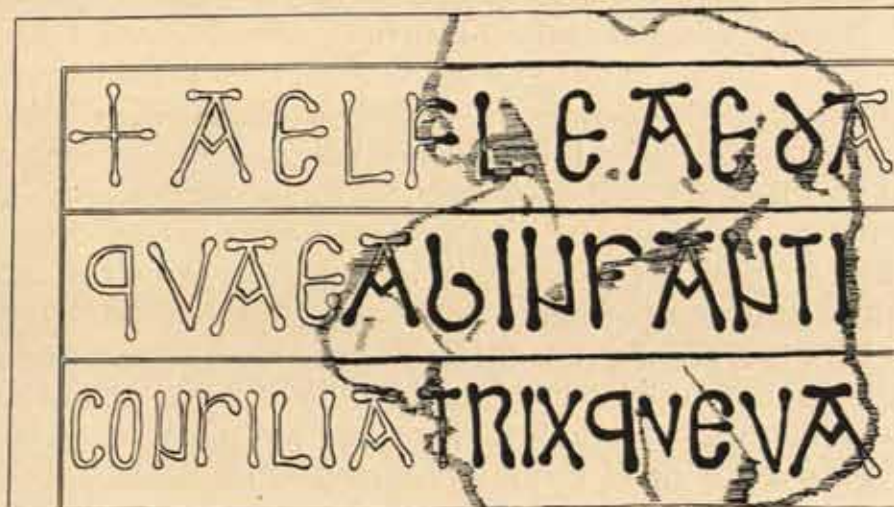 +AELFLE.AEDA
QVAEABINFANTI
CONSILIATRIXQVEVA